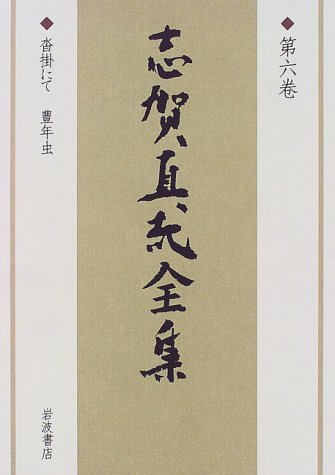 第六巻
志賀直哉全集
沓掛にて 豊年虫
岩波書店